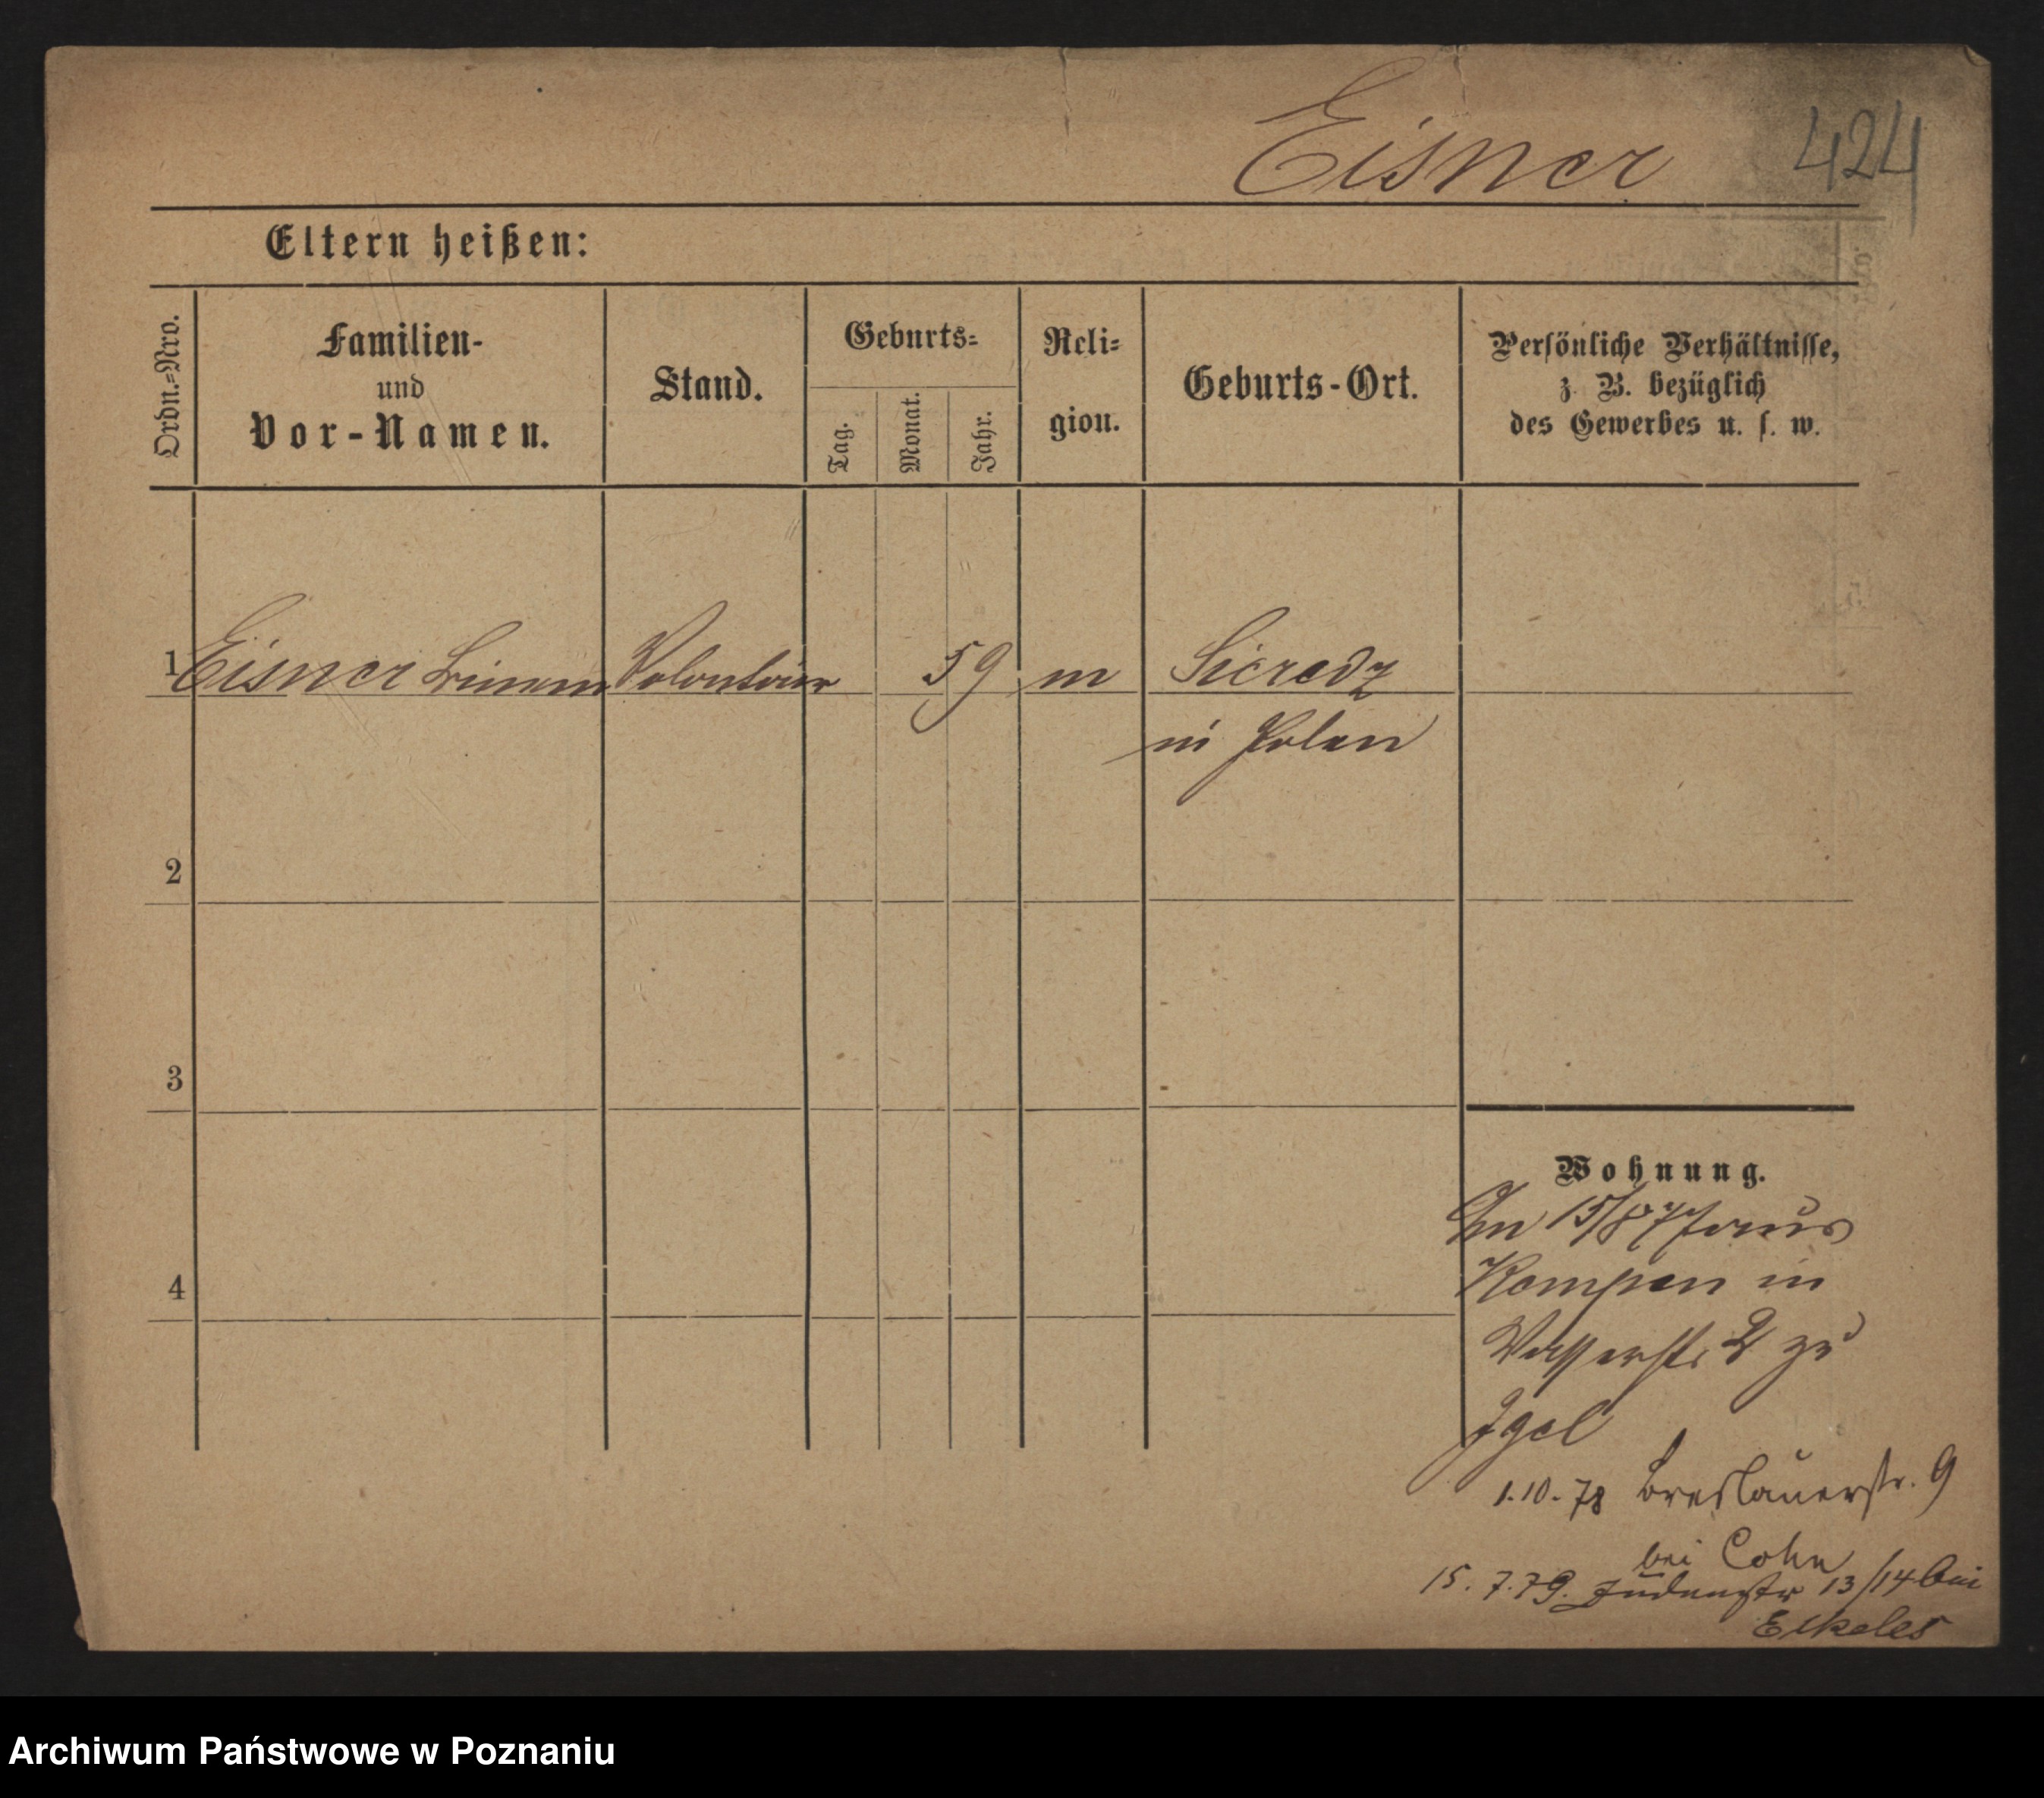 Eisner 424
Eltern heißen:
Ordn.-Nro.
Familien-
und
Vor-Namen.
Stand.
Geburts-
Tag.
Monat.
Jahr.
Reli-
gion.
Geburts-Ort.
Persönliche Verhältnisse,
z. B. bezüglich
des Gewerbes u. s. w.
1 Eisner Volontair 59 m Sieradz
in Polen
2
3
4
Wohnung.
15/8 77 aus
Kempen in
Wasserstr. 2 zu
Igel
1.10.78 Breslauerstr. 9
bei Cohn
15.7.79. Judenstr 13/14 bei
Eckeles
Archiwum Państwowe w Poznaniu